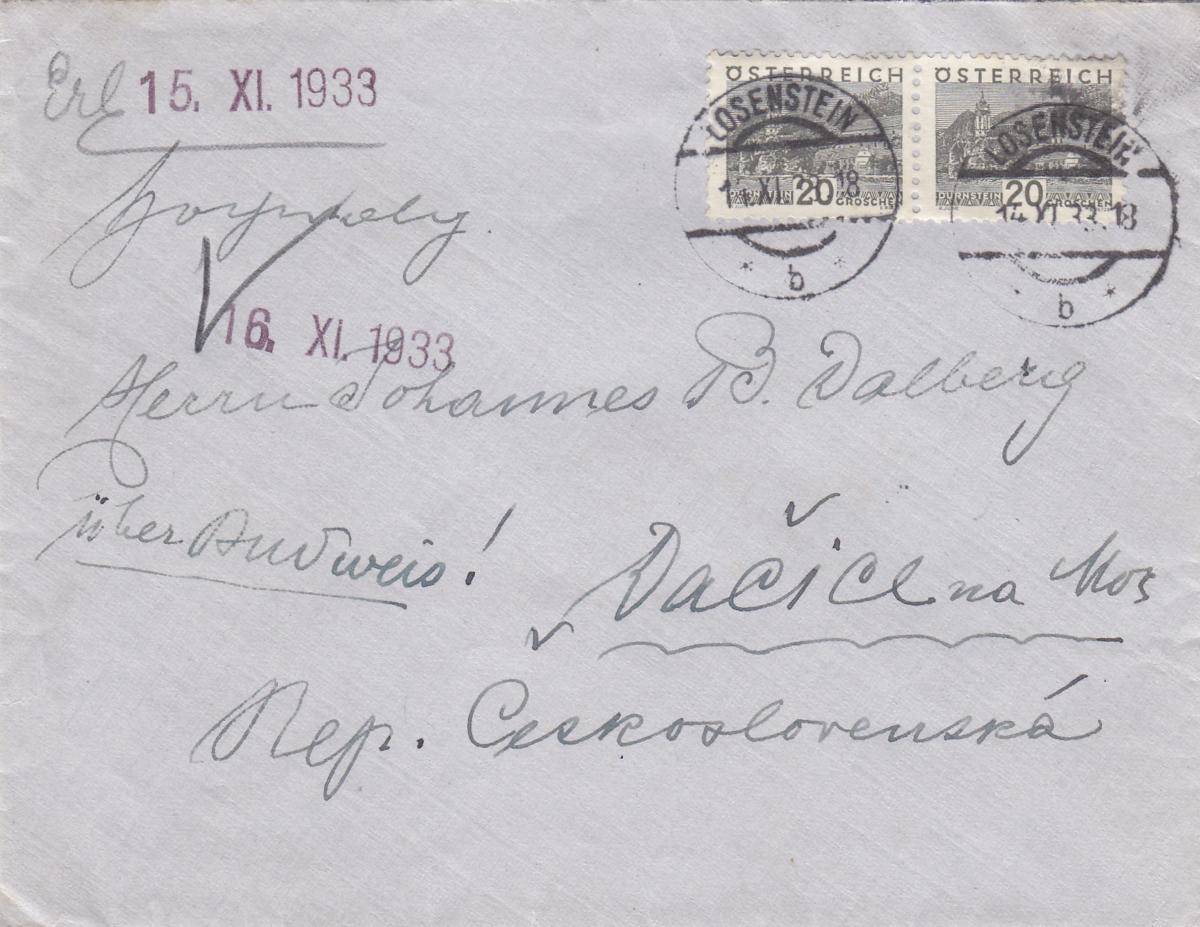 Erl 15. XI. 1933
ÖSTERREICH ÖSTERREICH
LOSENSTEIN LOSENSTEIN
14. XI. 33. 18 14. XI. 33. 18
20 20
DÜRNSTEIN GROSCHEN DÜRNSTEIN GROSCHEN
* b * * b *
16. XI. 1933
Herrn Johannes B. Dalberg
über Budweis!
Dačice na Mor
Rep. Československá